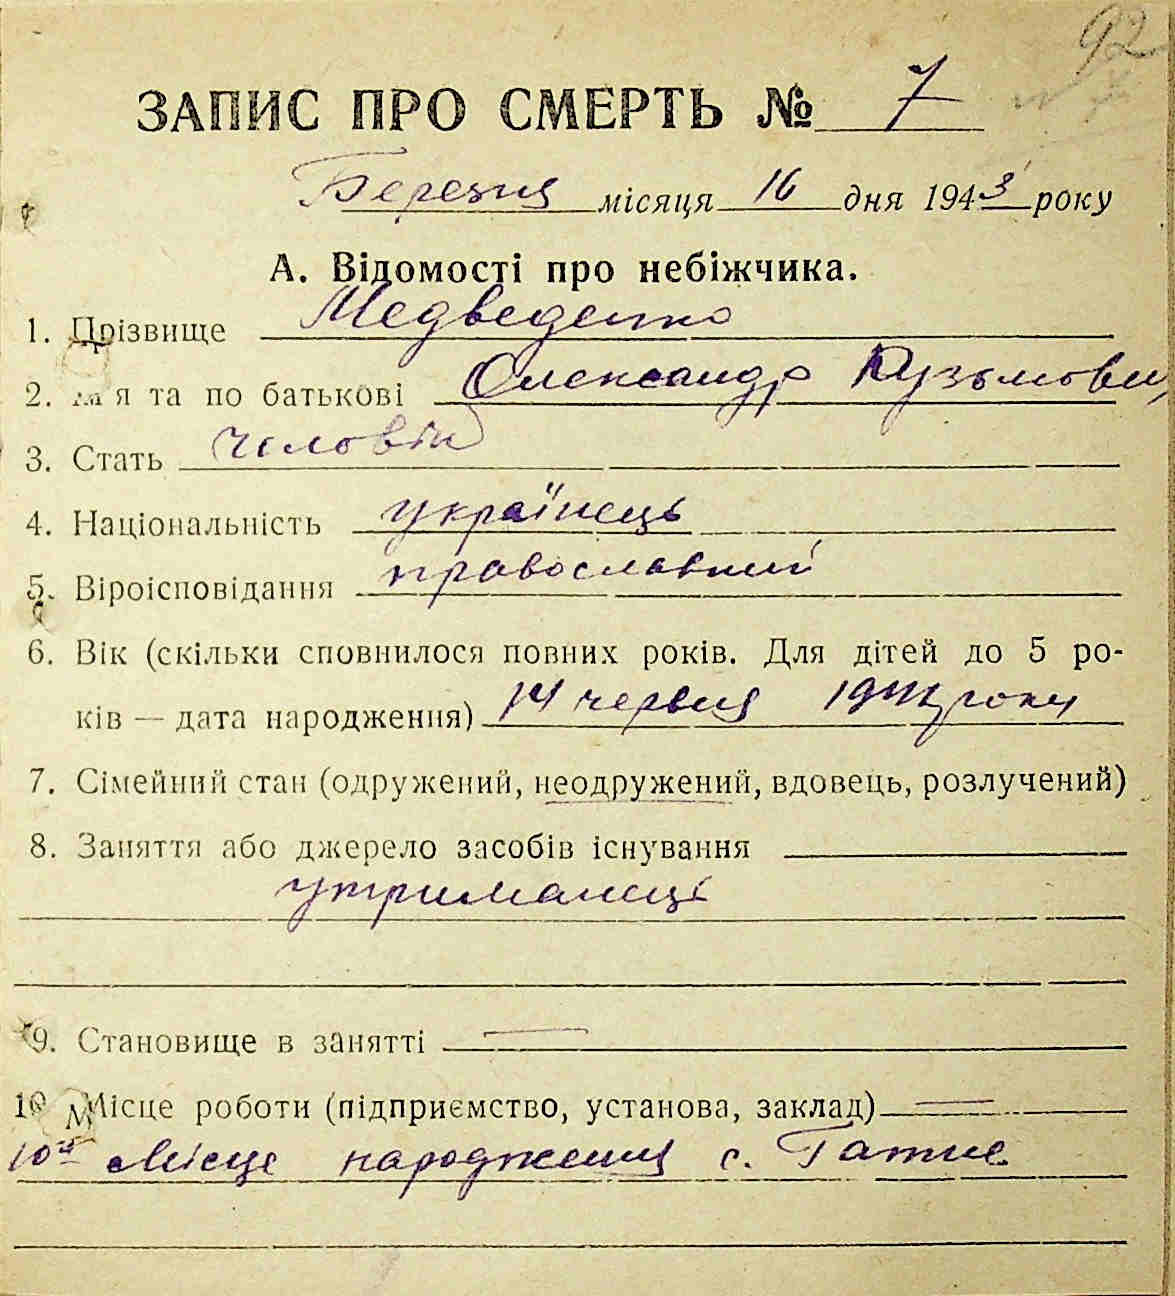 92
ЗАПИС ПРО СМЕРТЬ № 7
Березня місяця 16 дня 1943 року
А. Відомості про небіжчика.
1. Прізвище Медведенко
2. Ім'я та по батькові Олександр Кузьмович
3. Стать чоловік
4. Національність українець
5. Віроісповідання православний
6. Вік (скільки сповнилося повних років. Для дітей до 5 ро-
ків — дата народження) 14 червня року
7. Сімейний стан (одружений, неодружений, вдовець, розлучений)
8. Заняття або джерело засобів існування
утриманець
9. Становище в занятті —
10 Місце роботи (підприємство, установа, заклад) —
10а Місце народження с. Гатне